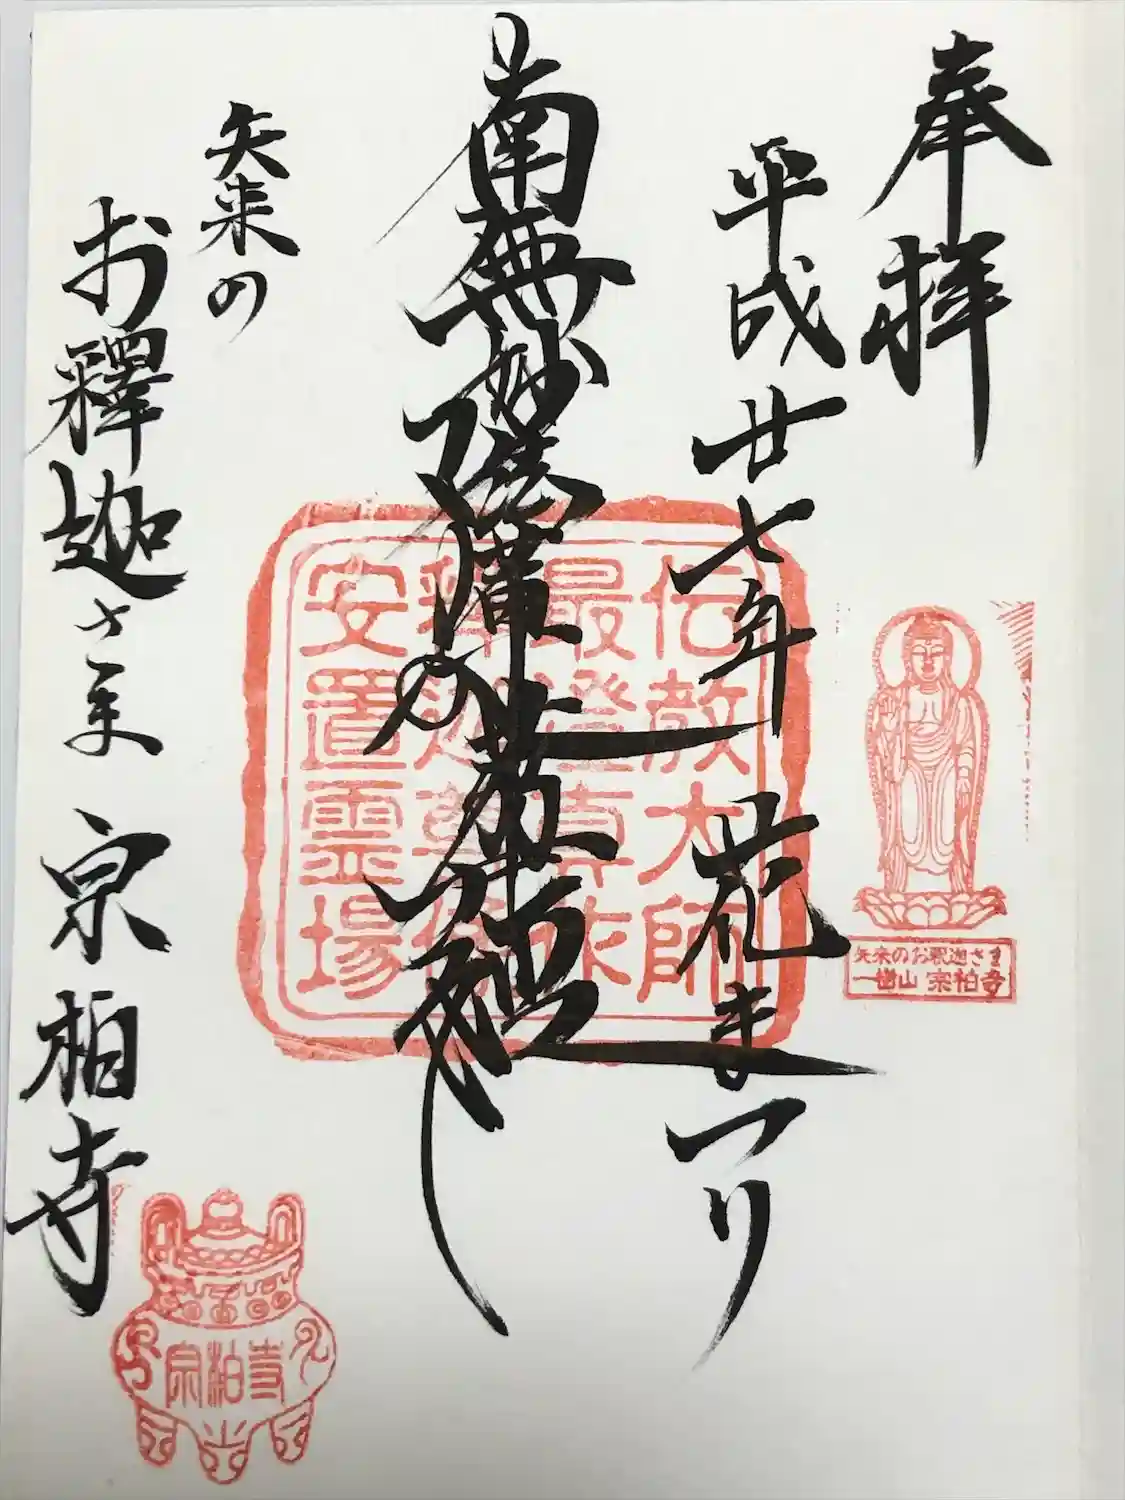 奉拝
平成廿七年 花まつり
南無妙法蓮華経
矢来の
お釋迦さま 宗柏寺
伝教大師
最澄真作
釋迦尊像
安置霊場
矢来のお釈迦さま
一樹山 宗柏寺
宗柏寺